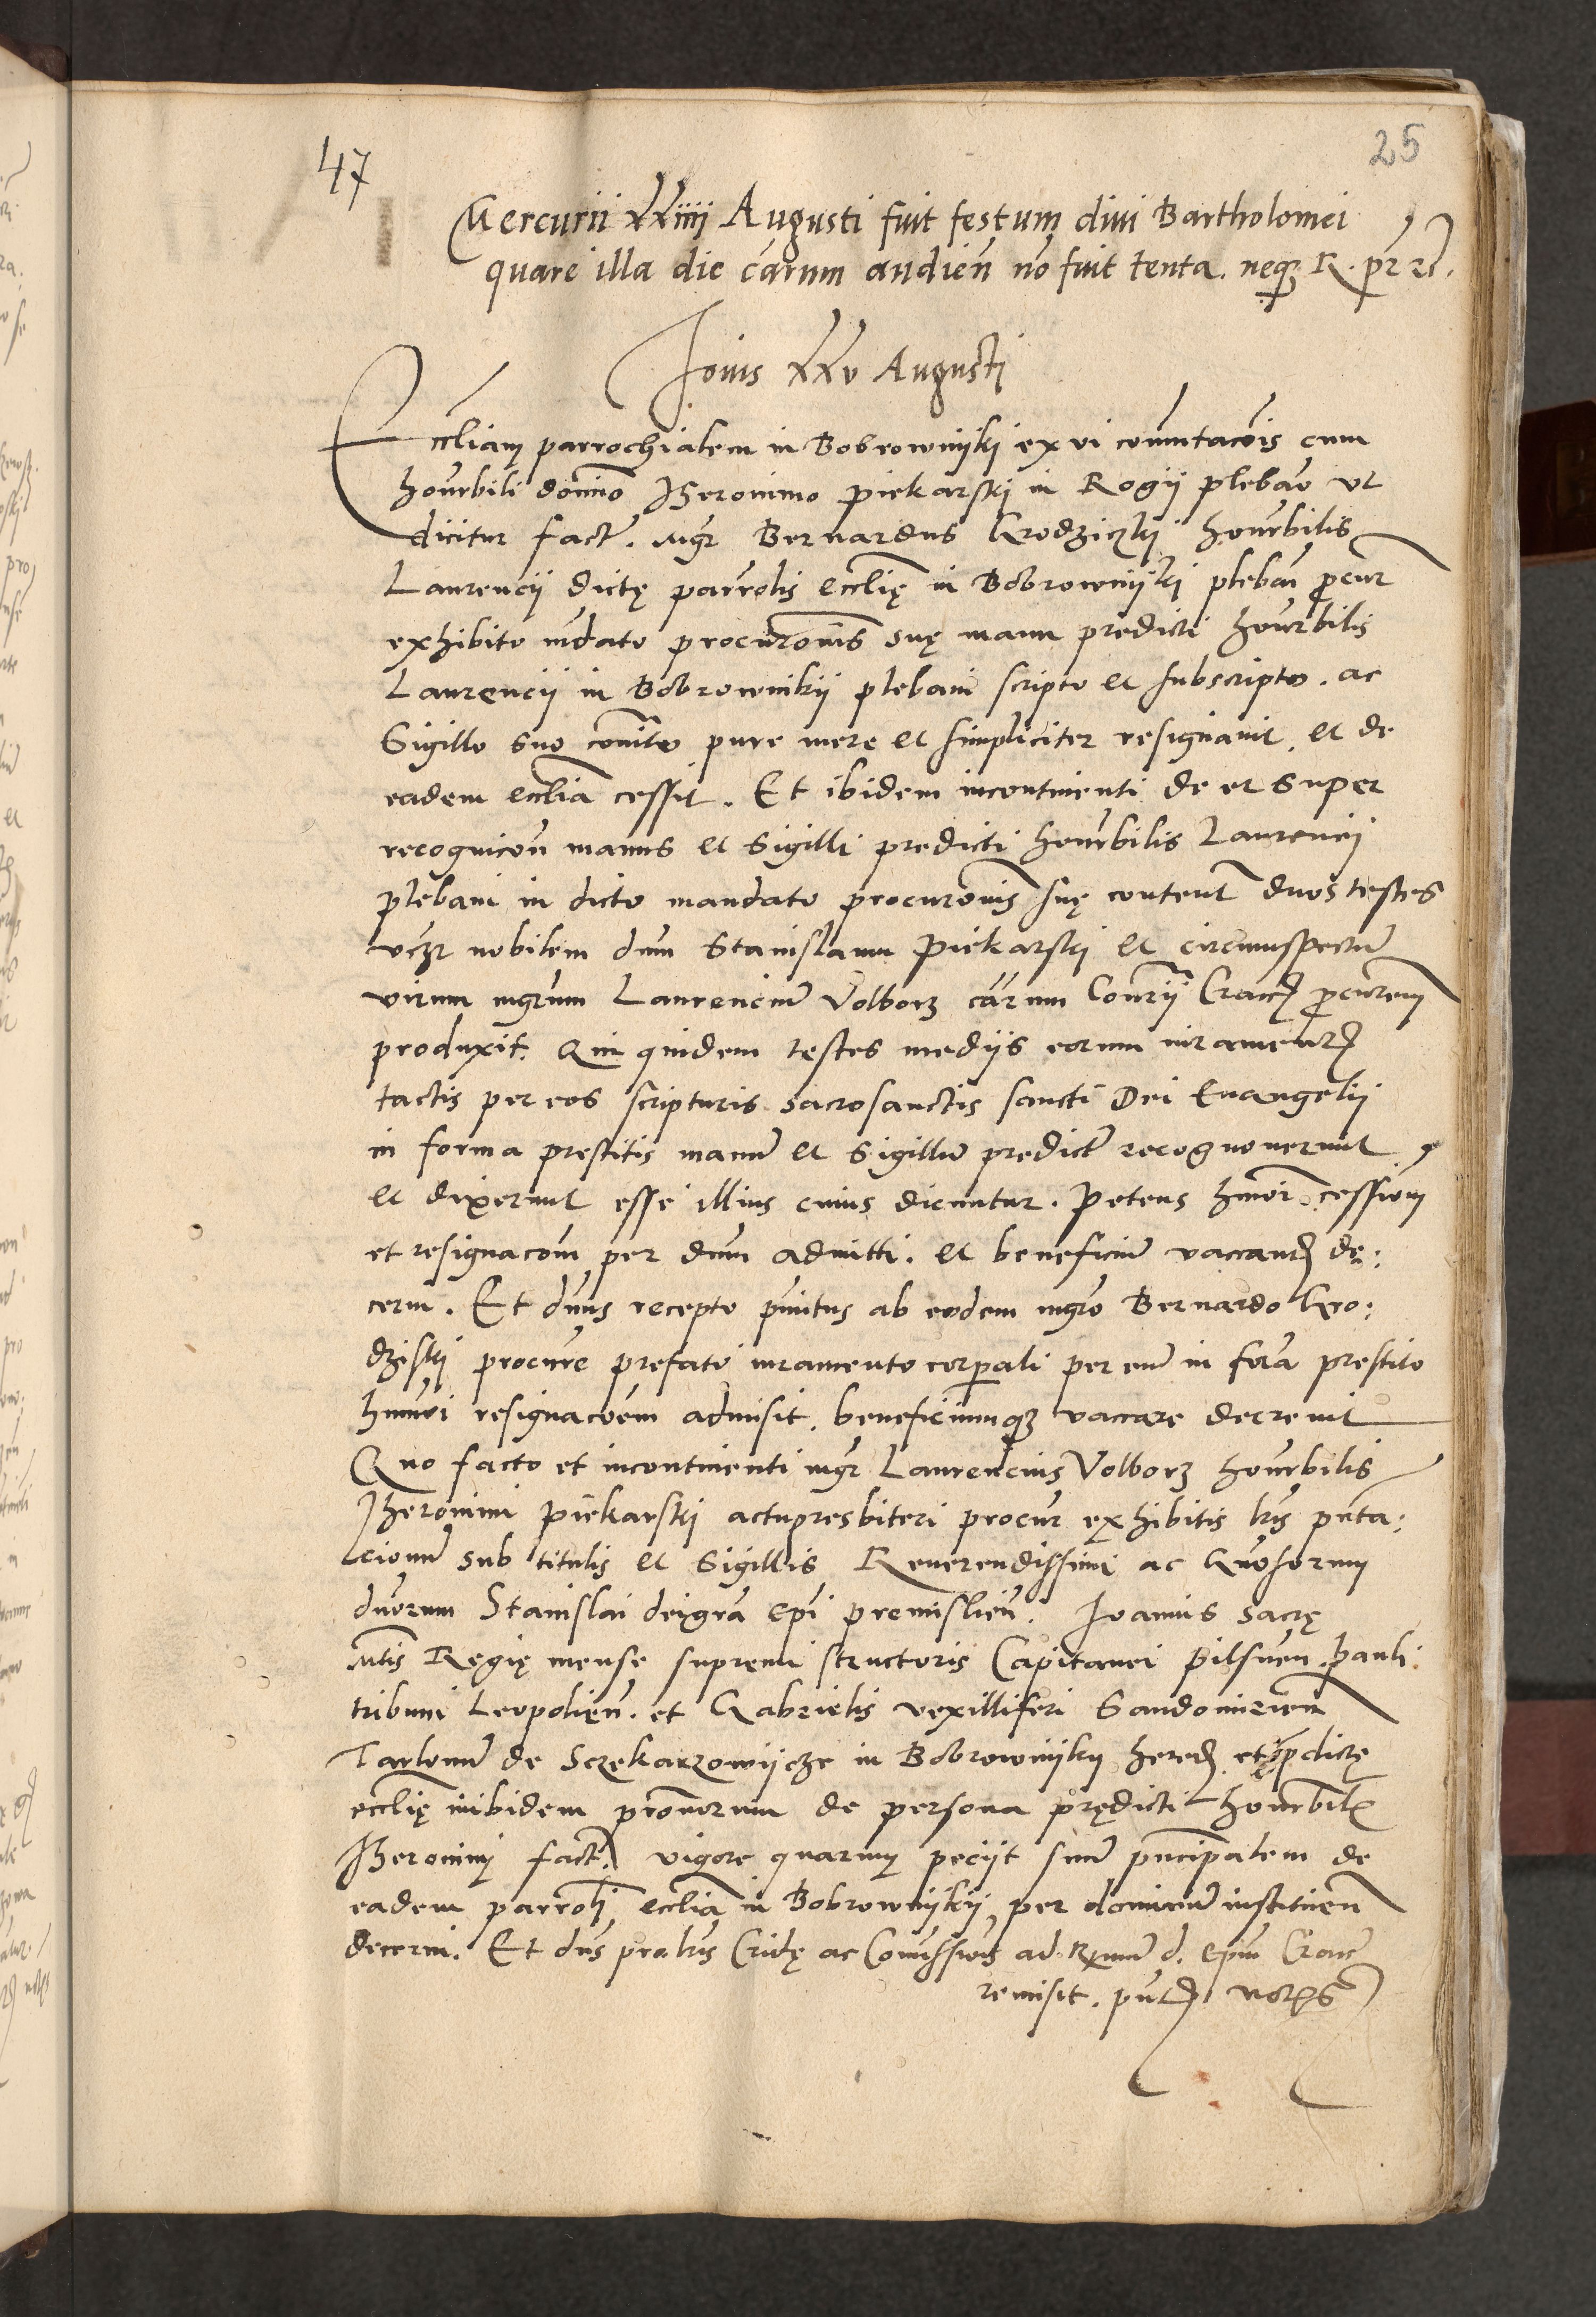 47
25
Mercurii XXiiii Augusti fuit festum diui Bartholomei
quare illa die carum audien no fuit tenta. neq R.
Jouis XXv Augusti
Eccliam parrochialem in Bobrownijkj ex vi comutacois cum
honrbili domino Hieronimo Piekarski in Rogii plebano ut
dicitur fact. Mgr Bernardus Grodziczki honrbilis
Laurencii dictę parrolis ecclię in Bobrownijki plebani procur
exhibito mdato procuronis suę manu predicti honrbilis
Laurencij in Bobrownikij plebani scripto et subscripto. ac
Sigillo suo comito pure mere et simpliciter resignauit. et de
eadem ecclia cessit. Et ibidem incontinenti de et super
recognicon manus et Sigilli predicti honrbilis Laurencij
plebani in dicto mandato procuronis suę content duos testes
vczt nobilem dnm Stanislaum Piekarski et circumspectu
virum mgrum Laurenciu Volborz carum Consrii Cracn procurem
produxit. Qui quidem testes mediis eorum iurament
tactis per eos scripturis sacrosanctis sancti Dei Euangelij
in forma prestitis manu et Sigillu predict recognouerunt
et dixerunt esse illius cuius dicuntur. Petens hmoi cessiom
et resignacom per dnm admitti. et beneficiu vaccand de:
cerni. Et dnus recepto pnitus ab eodem mgro Bernardo Gro:
dziski procure prefato iuramento corporali per eum in fora prestito
hmoi resignacoem admisit. beneficiumq vaccare decreuit
Quo facto et incontinenti mgr Laurencius Volborz honrbilis
Jheronimi Piekarski actupresbiteri procur exhibitis lris pnta:
cionu sub titulis et Sigillis Reuerendissimi ac Gnosorum
dnorum Stanislai deigra epi premislien. Joannis sacrę
Mtis Regię mense supremi structoris Capitanei Pilsnen. Pauli
tribuni Leopolien. et Gabrielis vexilliferi Sandomirien
Tarlonu de Sczekarzowijcze in Bobrownijky hered et pdictę
ecclię inibidem pronorum de persona prędicti honrbil
Hieronimi fact. vigore quarum peciit suu pncipalem de
eadem parroli ecclia in Bobrownijkij per dominum instituen
decerni. Et dns pro lris Cridę ac Comissiois ad Rmum d. epum Crac
remisit. pnt